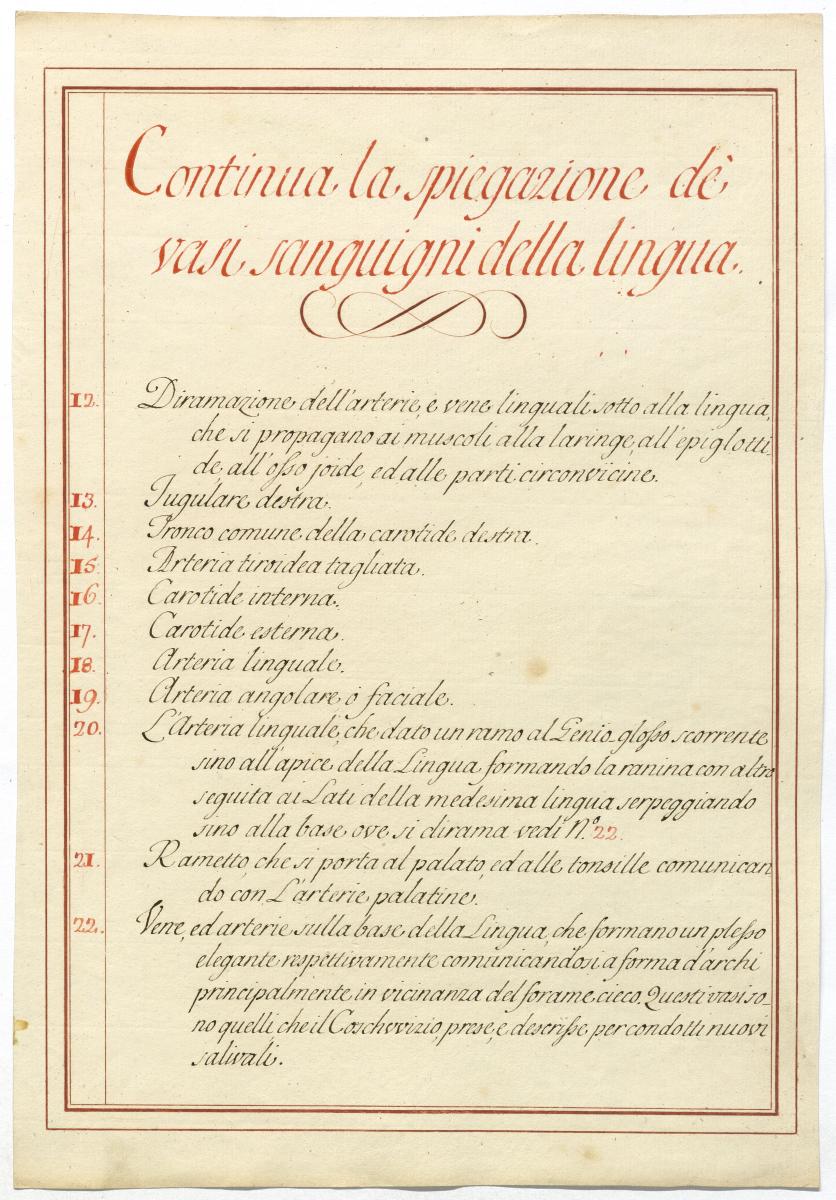 Continua la spiegazione dè
vasi sanguigni della lingua.
12. Diramazione dell'arterie, e vene linguali sotto alla lingua,
che si propagano ai muscoli, alla laringe, all'epiglotti-
de, all'osso joide, ed alle parti circonvicine.
13. Jugulare destra.
14. Tronco comune della carotide destra.
15. Arteria tiroidea tagliata.
16. Carotide interna.
17. Carotide esterna.
18. Arteria linguale.
19. Arteria angolare ó faciale.
20. L'Arteria linguale, che dato un ramo al Genio glosso scorrente
sino all'apice della Lingua formando la ranina con altro
seguita ai Lati della medesima lingua serpeggiando
sino alla base ove si dirama vedi N.º 22.
21. Rametto, che si porta al palato, ed alle tonsille comunican
do con L'arterie palatine.
22. Vene, ed arterie sulla base della Lingua, che formano un plesso
elegante respettivamente comunicandosi a forma d'archi
principalmente in vicinanza del forame cieco. Questi vasi so-
no quelli che il Coschwvizio, prese, e descrisse per condotti nuovi
salivali.